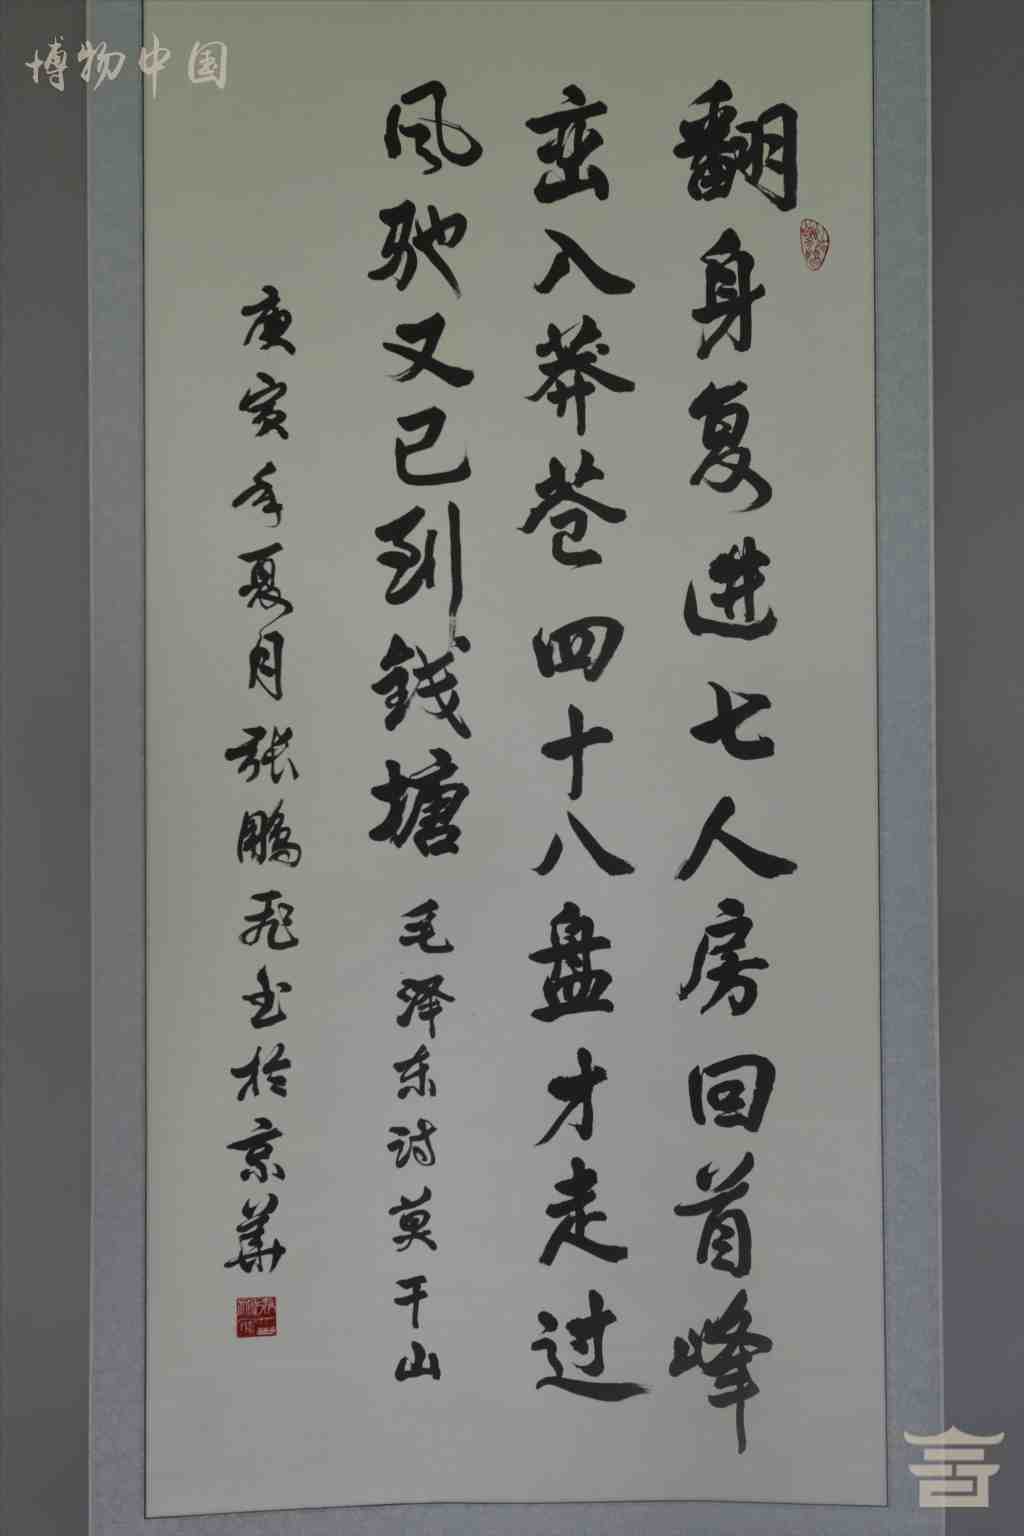 博物中国
翻身复进七人房回首峰
峦入莽苍四十八盘才走过
风驰又已到钱塘 毛泽东诗莫干山
庚寅年夏月张鹏飞书於京华